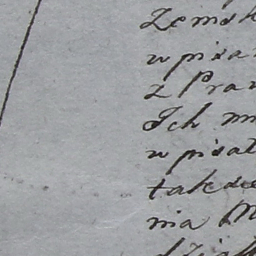 Zemsk
wpisa
z Praw
Ich m
wpisa
także
nia M